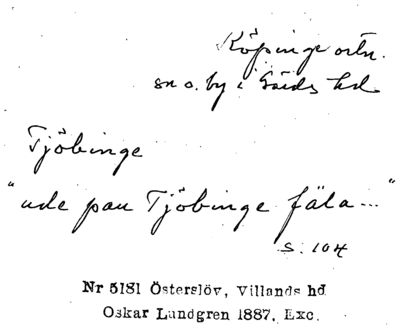 Köpinge ortn.
sn o. by i Gärds hd
Tjöbinge
"ude pau Tjöbinge fäla..."
S. 104
Nr 5181 Österslöv, Villands hd
Oskar Lundgren 1887. Exc.